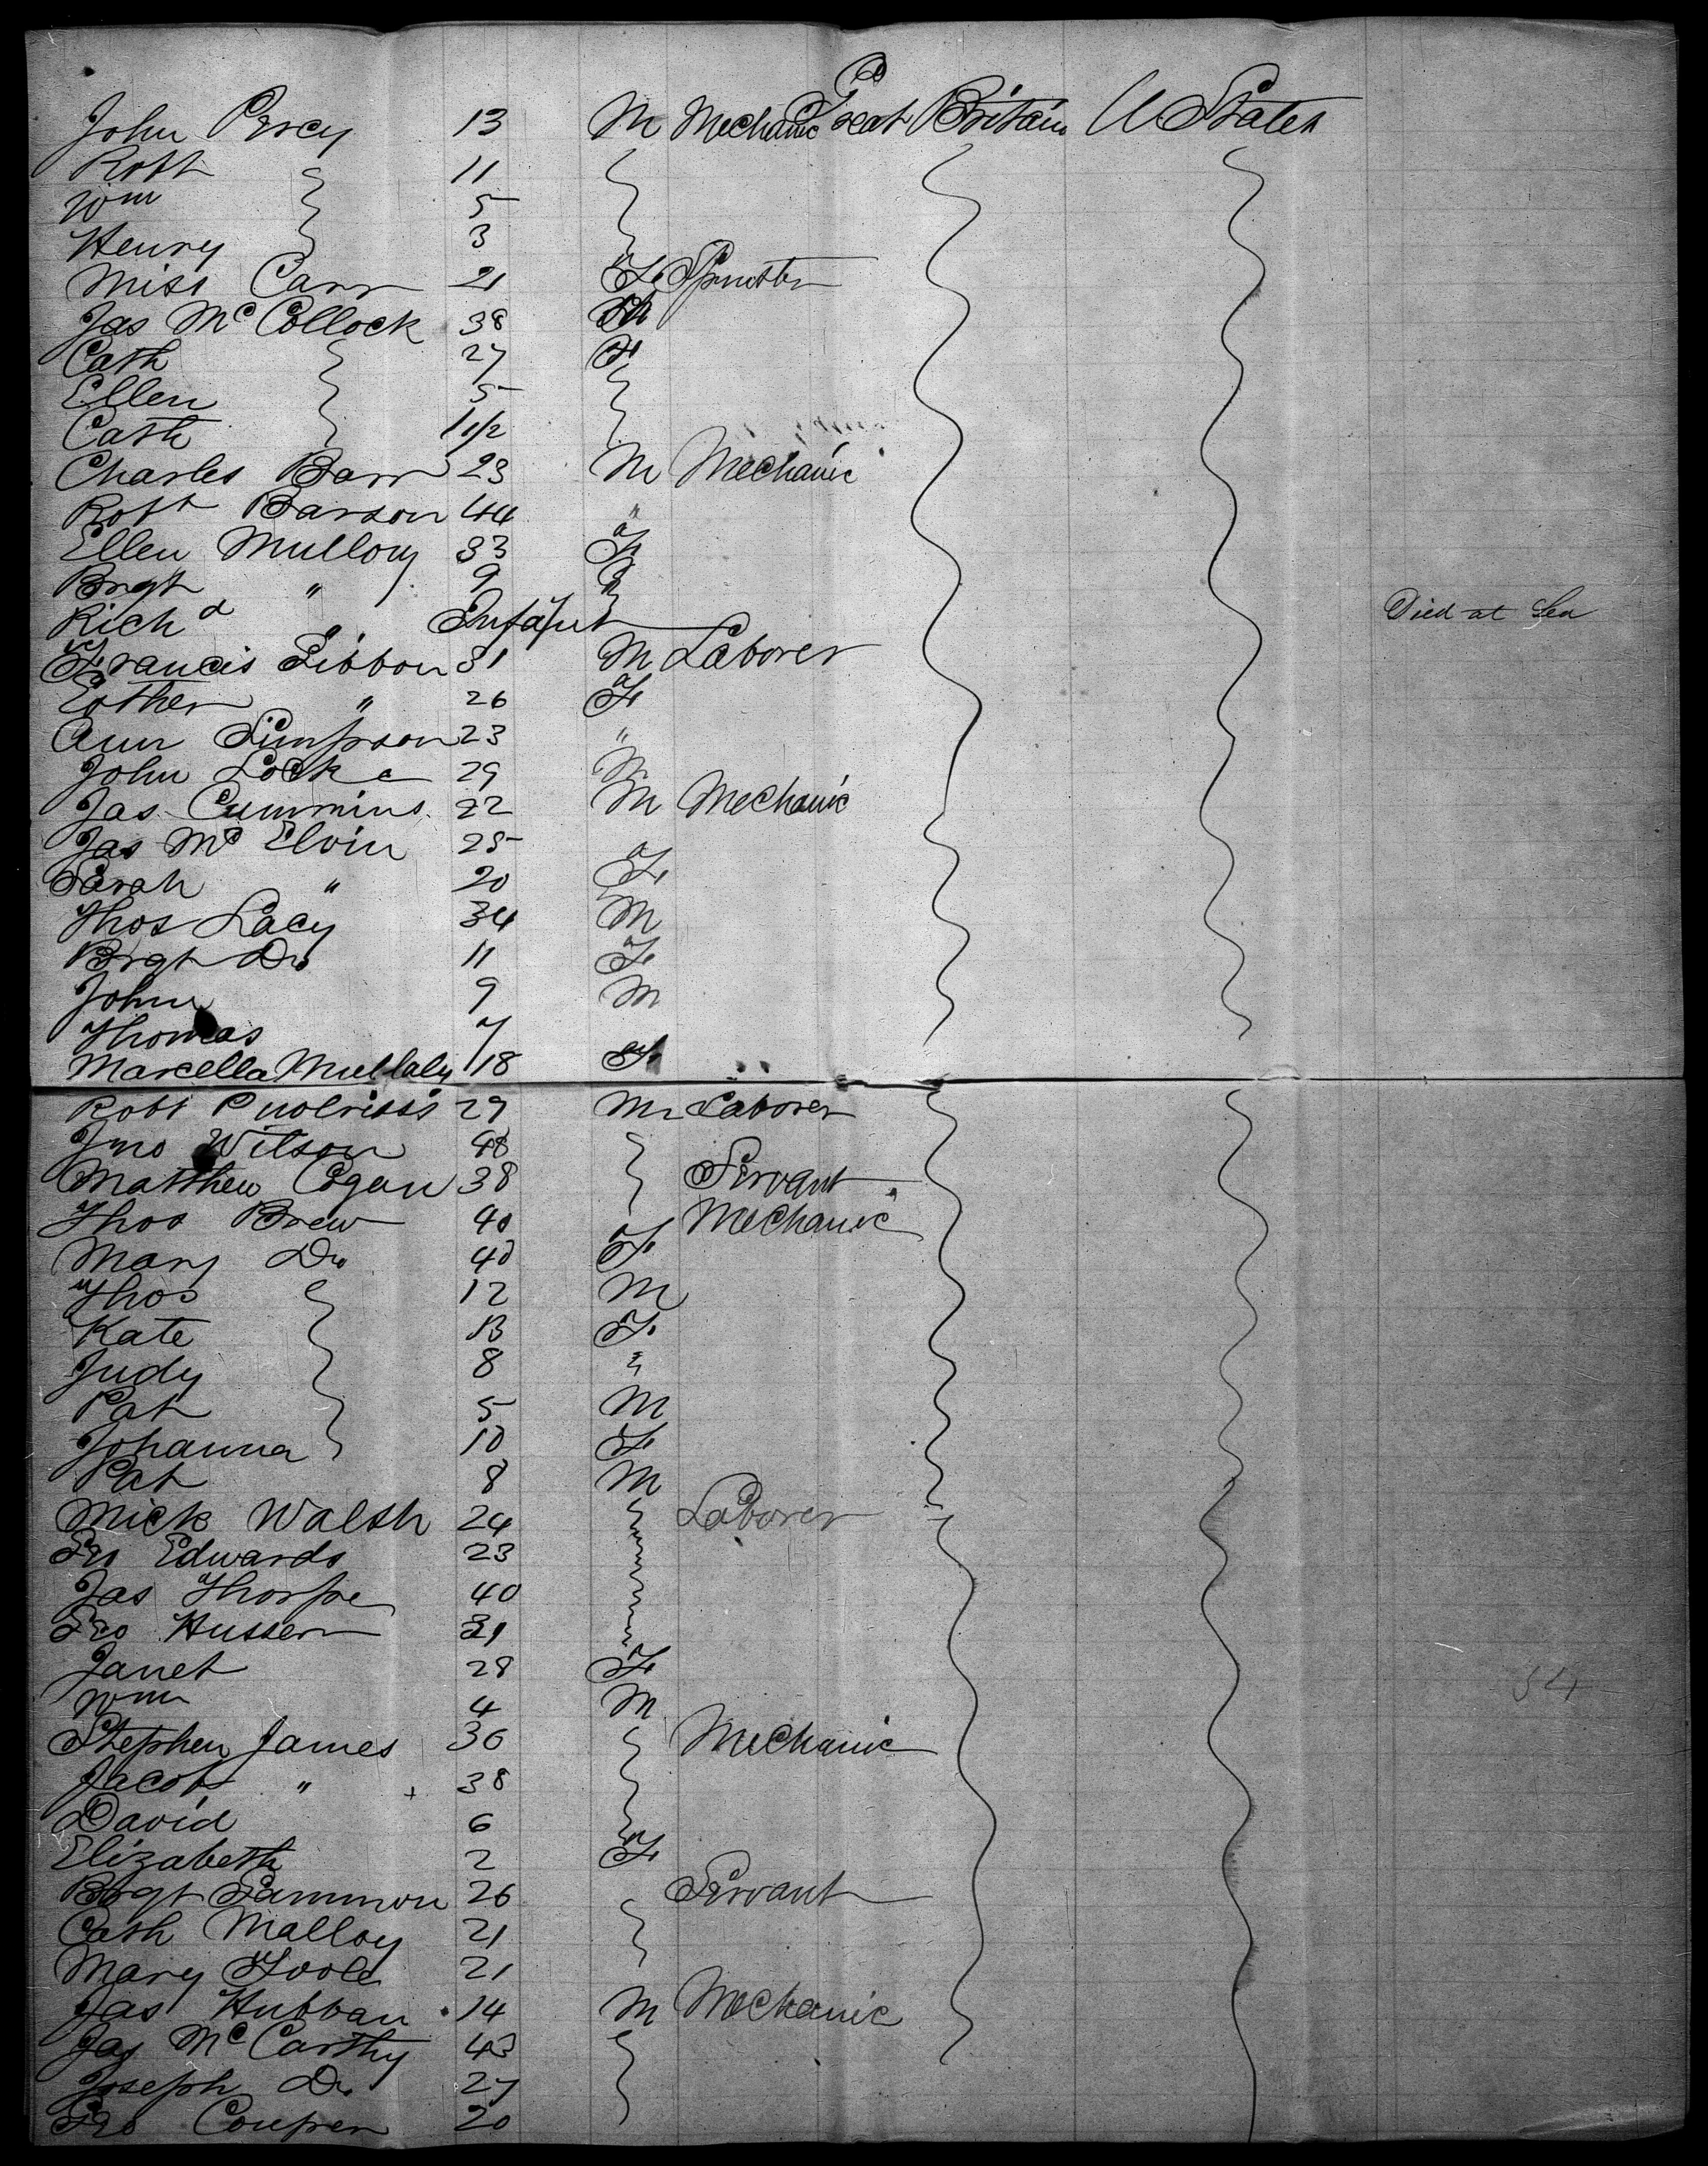 John Percy 13 M Mechanic Great Britain U States
Robt 11
Wm 5
Henry 3
Miss Carr 21 F Spinster
Jas McCollock 38 M
Cath 27 F
Ellen 5
Cath 1 1/2
Charles Barr 23 M Mechanic
Robt Barson 44 "
Ellen Mulloy 33 F
Brgt " 9 "
Richd " Infant Died at Sea
Francis Gibbon 31 M Laborer
Esther " 26 F
Ann Simpson 23 "
John Locke 29 M
Jas Cummins 22 M Mechanic
Jas McElvin 25
Sarah " 20 F
Thos Lacy 34 M
Brgt Do 11 F
John 9 M
Thomas 7
Marcella Mullaly 18 F
Robt 29 M Laborer
Jno Wilson 48
Matthew Cogan 38 Servant
Thos Brew 40 Mechanic
Mary Do 40 F
Thos 12 M
Kate 13 F
Judy 8 "
Pat 5 M
Johanna 10 F
Pat 8 M
Mick Walsh 24 Laborer
Geo Edwards 23
Jas Thorpe 40
Geo 31
Janet 28 F
Wm 4 M
Stephen James 36 Mechanic
Jacob " 38
David 6
Elizabeth 2 F
Brgt Sammon 26 Servant
Cath Malloy 21
Mary Toole 21
Jas Hubban 14 M Mechanic
Jas McCarthy 43
Joseph Do 27
Geo Couper 20